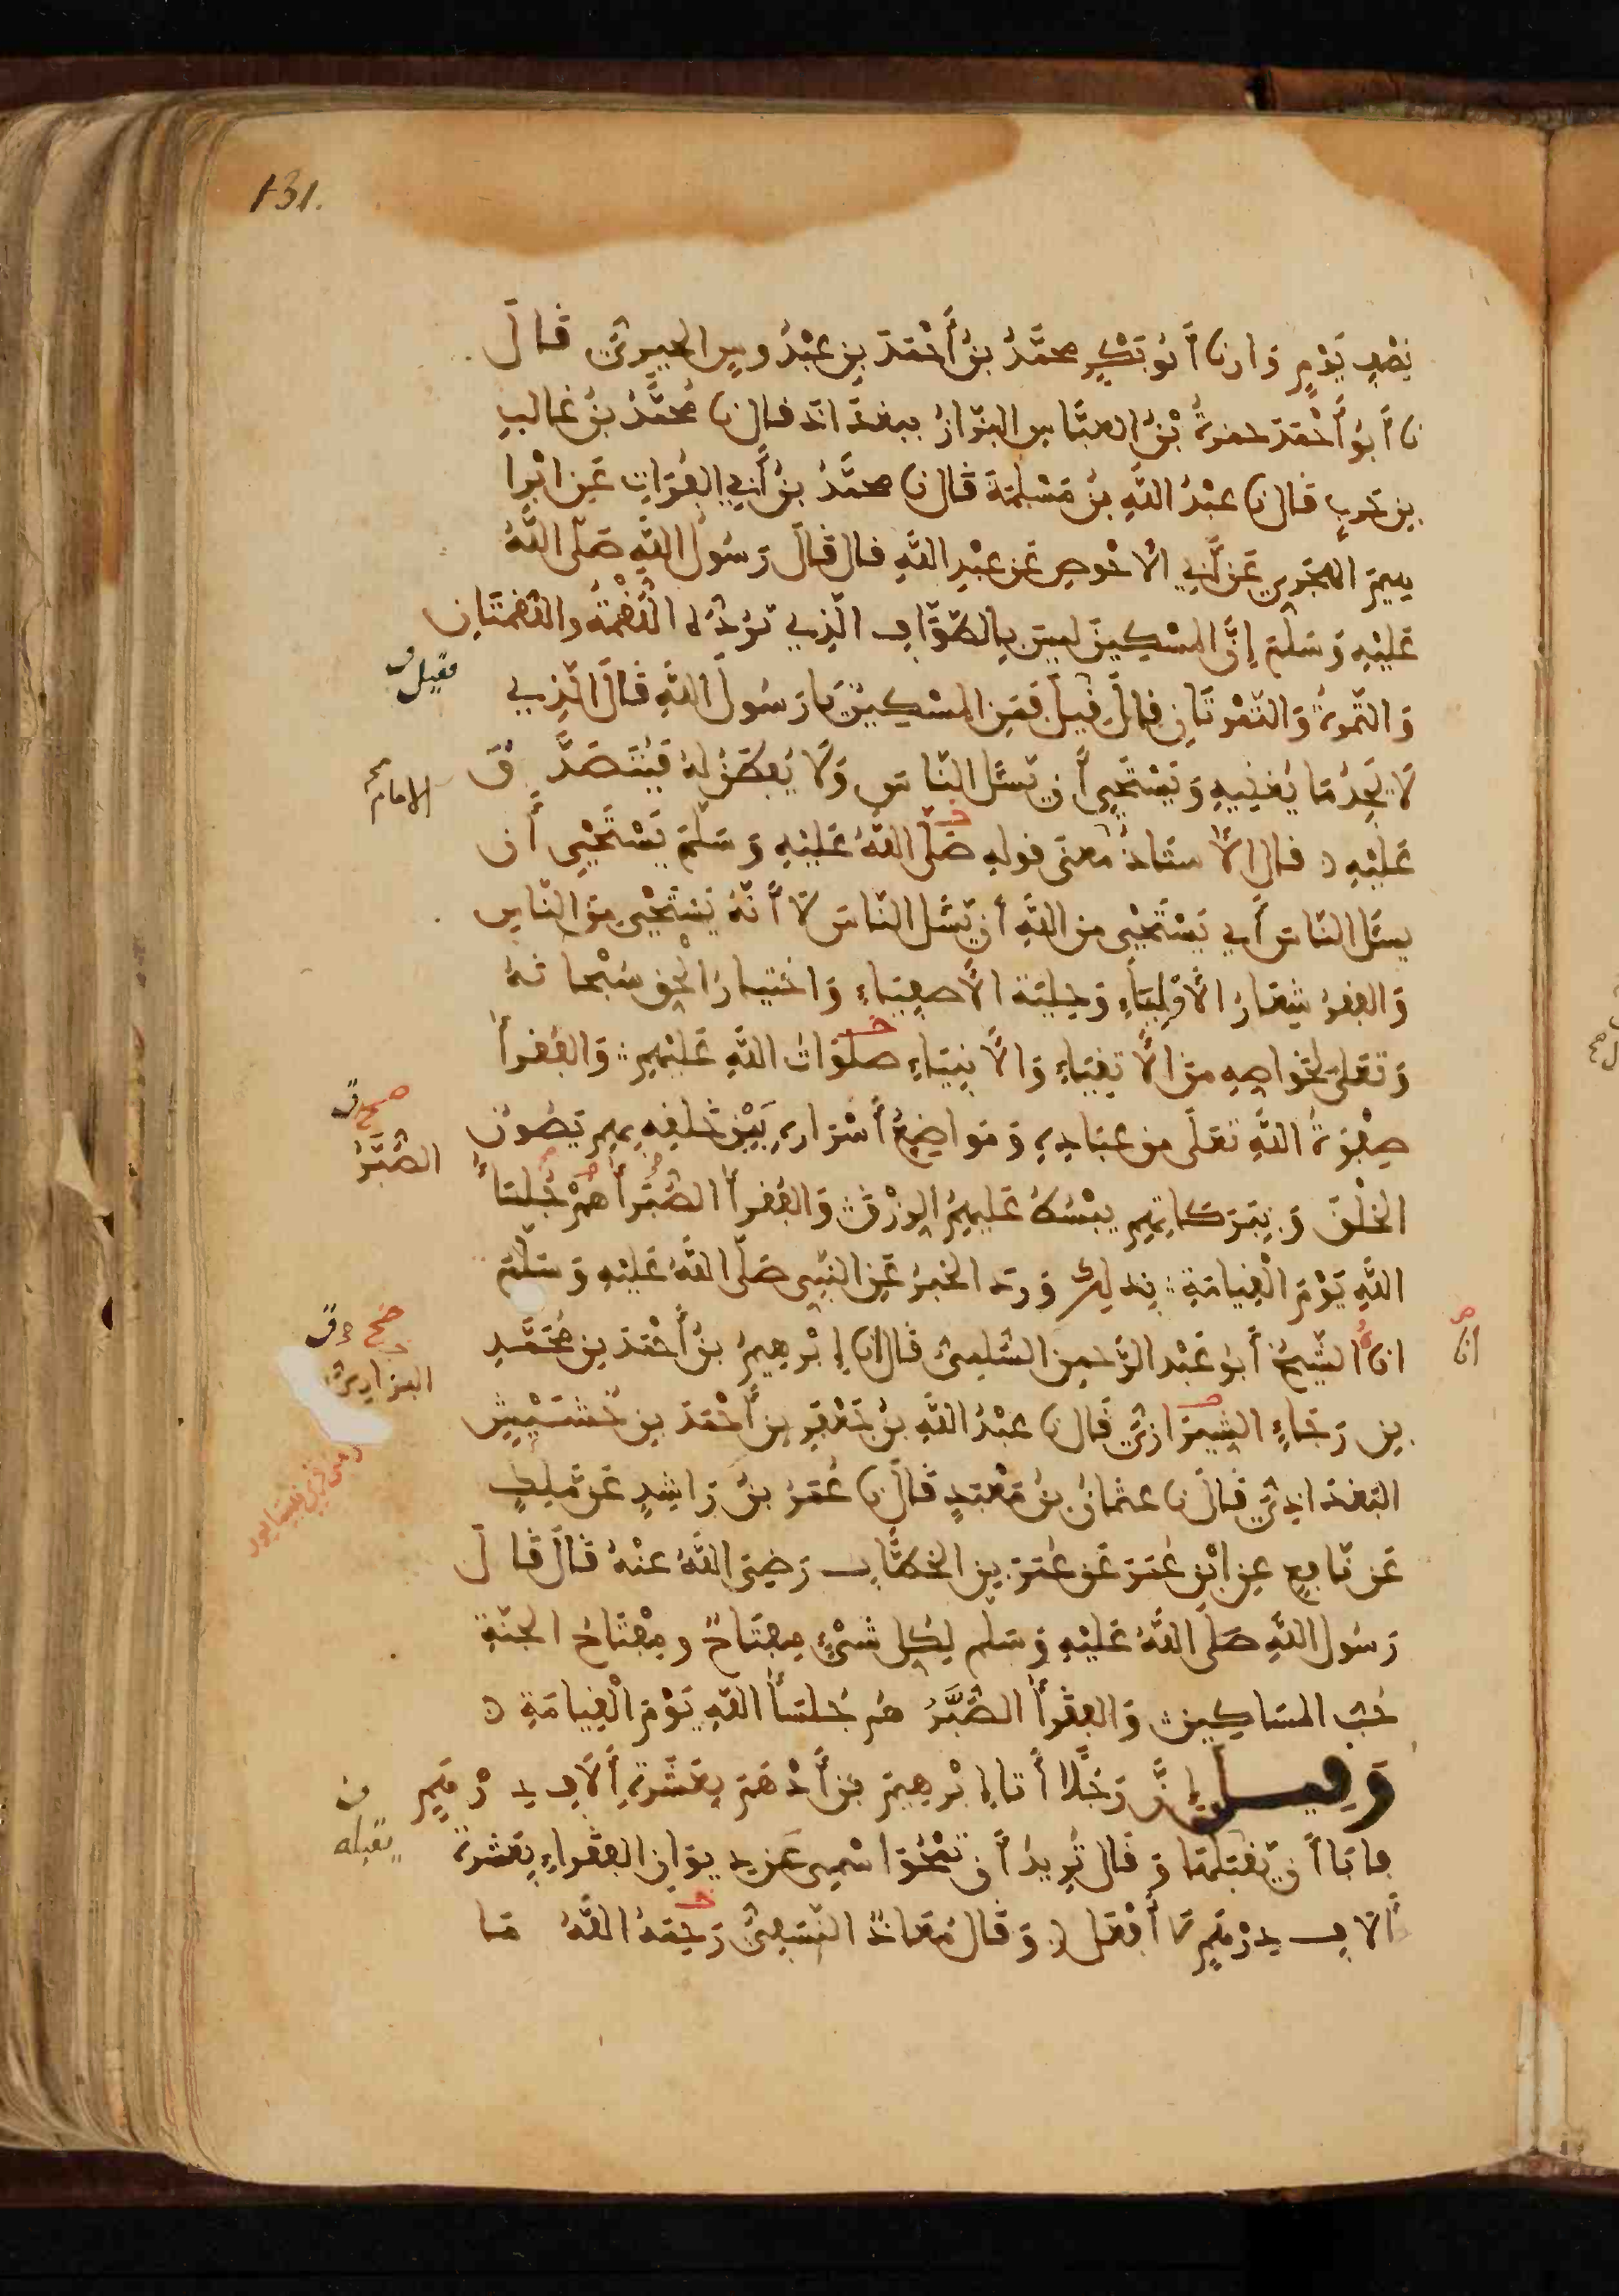 131.
نِصْفِ يَوْمٍ وَارنا أَبُو بَكْرٍ محمَّدُ بنُ أَحْمَدَ بنِ عَبْدُوسٍ الحيرِيُّ قَالَ
نا أَبُو أَحْمَدَ حمزةُ بْنُ العبَّاسِ البزّازُ ببغدَادَ قال نا مُحمَّدُ بنُ غالبِ
بنِ حَربٍ قَال نا عبْدُ اللَّهِ بنُ مَسْلمَةَ قَال نا محمَّدُ بنُ أَبِي الفُرَاتِ عَن ابْرا
هِيمَ الهجَرِي عَن أَبِي الأحْوصِ عَن عبْدِ اللَّهِ قال قَالَ رَسُولُ اللَّهِ صَلَّى اللَّهُ
عَلَيْهِ وَسَلَّمَ إِنَّ المسْكِينَ ليسَ بِالطَّوَّافِ الَّذِي تَرُدُّهُ اللُّقْمَةُ واللقمتَانِ
وَالتَّمرةُ وَالتّمْرتَانِ قالَ قِيلَ فَمَنِ المسْكِينُ يا رَسُولَ اللَّهِ قَالَ الَّذِي
مقيل ف
لَا يَجِدُ مَا يُغنِيهِ وَيَسْتَحْيِي أَن يَسئَلَ النَّاسَ وَلَا يُفطَنُ لهُ فَيُتَصَدَّقَ
الامام
عَلَيْهِ قال الأستاذُ معنَى قولِهِ صَلَّى اللَّهُ عَلَيْهِ وَسَلَّمَ يَسْتَحْيِي أَن
يسئَلَ النَّاسَ أَي يَسْتَحْيِي مِن اللَّهِ أَن يَسْئَلَ النَّاسَ لا أَنَّهُ يَسْتَحْيِي مِنَ النَّاسِ
وَالفقرُ شِعَارُ الأَوْلِيَاءِ وَحِليَةُ الأَصفِيَاءِ وَاختيارُ الحقِ سُبْحانهُ
وَتعَلى لخواصِهِ مِنَ الأَتقِيَاءِ وَالأَنبِيَاءِ صلَوَاتُ اللَّهِ عَلَيْهِم وَالفُقرأُ
صِفْوَةُ اللَّهِ تعَلَى مِن عبَادِهِ وَمَواضِعُ أَسْرَارِهِ بَيْنَ خَلقِهِ بِهِم يَصُونُ
صح ق
الصُّبَّرُ
الخلْقَ وَبِبَرَكَاتِهِم يبْسُطُ عَليهِمُ الرِزْقَ وَالفُقرأُ الصُّبَّرُ هُمْ جُلَسَاءُ
اللَّهِ يَوْمَ الْقِيامَةِ بِذلِكَ وَرَدَ الخبرُ عَنِ النَّبِي صَلَّى اللَّهُ عَلَيْهِ وَسَلَّمَ
انا الشَّيخُ أَبُو عَبْد الرَّحمنِ السُّلمِيُّ قَال انا إِبْرهِيمُ بنُ أَحْمَدَ بنِ مُحَمَّدِ
صح ق
انا
بنِ رَجَاءٍ الشِيرَازِيُّ قَال نا عبْدُ اللَّهِ بنُ جَعْفَرِ بنِ أَحْمَدَ بنِ خُشَيْشٍ
الفزارِيُّ
البَغدَادِيُّ قَال نا عثمانُ بنُ مَعْبَدٍ قَال نا عُمَرُ بنُ رَاشِدٍ عَن مَلِكٍ
عَن نَافِعٍ عنِ ابْنِ عُمَرَ عَن عُمَرَ بنِ الخطَّابِ رَضِيَ اللَّهُ عنْهُ قَالَ قَالَ
رَسُولُ اللَّهِ صَلَّى اللَّهُ عَلَيْهِ وَسَلَّم لِكُلِ شَيْءٍ مِفتَاحٌ ومِفْتَاحُ الجنّةِ
حُبُّ المسَاكِينِ وَالفقَرأُ الصُّبَّرُ هُم جُلسَأُ اللَّهِ يَوْمَ الْقِيامَةِ
وَقِيلَ إِنَّ رَجُلًا أَتَا إِبْرهِيمَ بنَ أَدْهَمَ بِعَشَرَةِ أَلَافِ دِرْهَمٍ
فابَا أَن يَقْبَلَهَا وَقَال تُرِيدُ أَن تَمْحُوَ اسْمِي عَن دِيوَانِ الفقَراءِ بِعَشَرةِ
ق
يقبله
أَلَافِ دِرْهَمٍ لَا أَفْعَلُ وَقَال مُعَاذٌ النَّسَفِيُّ رَحِمَهُ اللَّهُ مَا